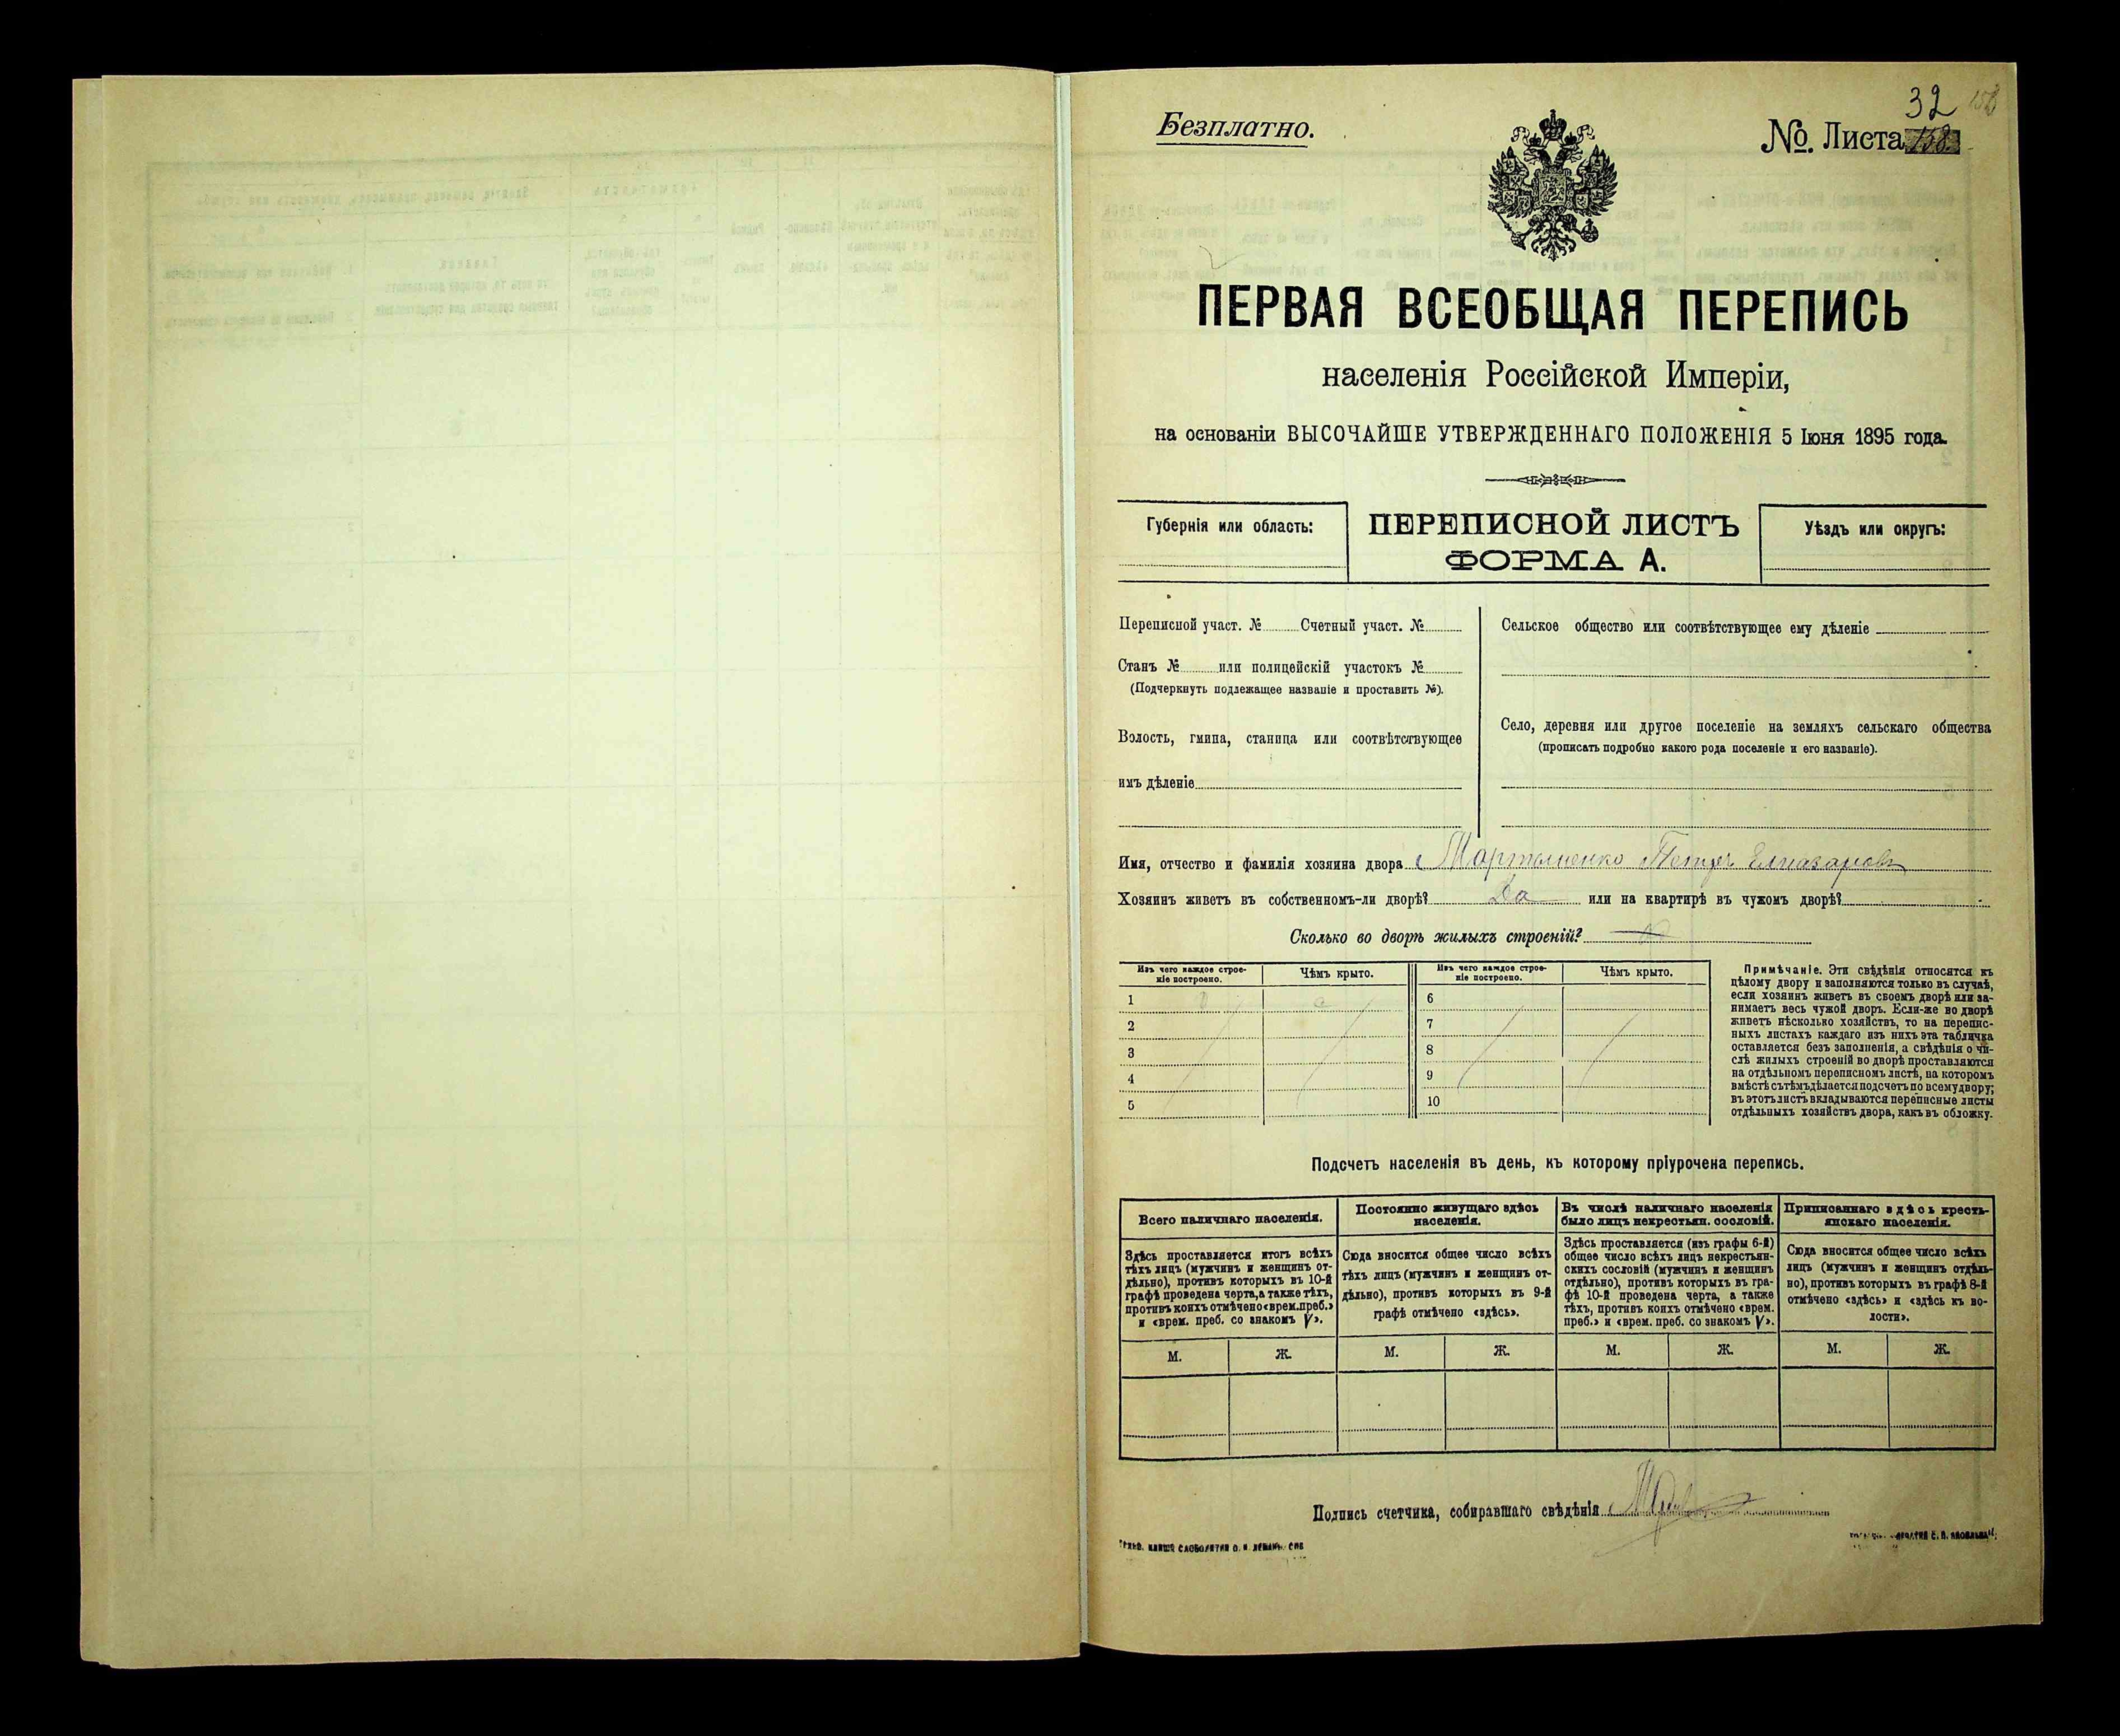 32
Безплатно.
№. Листа 158
ПЕРВАЯ ВСЕОБЩАЯ ПЕРЕПИСЬ
населенія Россійской Имперіи,
на основаніи ВЫСОЧАЙШЕ УТВЕРЖДЕННАГО ПОЛОЖЕНІЯ 5 Іюня 1895 года.
Губернія или область:
ПЕРЕПИСНОЙ ЛИСТЪ
ФОРМА А.
Уѣздъ или округъ:
Переписной участ. № Счетный участ. №
Станъ № или полицейскій участокъ №
(Подчеркнуть подлежащее названіе и проставить №).
Волость, гмина, станица или соотвѣтствующее
имъ дѣленіе
Сельское общество или соотвѣтствующее ему дѣленіе
Село, деревня или другое поселеніе на земляхъ сельскаго общества
(прописать подробно какого рода поселеніе и его названіе).
Имя, отчество и фамилія хозяина двора Мартыненко Петръ
Хозяинъ живетъ въ собственномъ-ли дворѣ? Да или на квартирѣ въ чужомъ дворѣ?
Сколько во дворѣ жилыхъ строеній?
Изъ чего каждое строе-
ніе построено.
Чѣмъ крыто.
1
2
3
4
5
Изъ чего каждое строе-
ніе построено.
Чѣмъ крыто.
6
7
8
9
10
Примѣчаніе. Эти свѣдѣнія относятся къ
цѣлому двору и заполняются только въ случаѣ,
если хозяинъ живетъ въ своемъ дворѣ или за-
нимаетъ весь чужой дворъ. Если-же во дворѣ
живетъ нѣсколько хозяйствъ, то на перепис-
ныхъ листахъ каждаго изъ нихъ эта табличка
оставляется безъ заполненія, а свѣдѣнія о чи-
слѣ жилыхъ строеній во дворѣ проставляются
на отдѣльномъ переписномъ листѣ, на которомъ
вмѣстѣ съ тѣмъ дѣлается подсчетъ по всему двору;
въ этотъ листъ вкладываются переписные листы
отдѣльныхъ хозяйствъ двора, какъ въ обложку.
Подсчетъ населенія въ день, къ которому пріурочена перепись.
Всего наличнаго населенія.
Здѣсь проставляется итогъ всѣхъ
тѣхъ лицъ (мужчинъ и женщинъ от-
дѣльно), противъ которыхъ въ 10-й
графѣ проведена черта, а также тѣхъ,
противъ коихъ отмѣчено «врем. преб.»
и «врем. преб. со знакомъ V».
М.
Ж.
Постоянно живущаго здѣсь
населенія.
Сюда вносится общее число всѣхъ
тѣхъ лицъ (мужчинъ и женщинъ от-
дѣльно), противъ которыхъ въ 9-й
графѣ отмѣчено «здѣсь».
М.
Ж.
Въ числѣ наличнаго населенія
было лицъ некрестьян. сословій.
Здѣсь проставляется (изъ графы 6-й)
общее число всѣхъ лицъ некрестьян-
скихъ сословій (мужчинъ и женщинъ
отдѣльно), противъ которыхъ въ гра-
фѣ 10-й проведена черта, а также
тѣхъ, противъ коихъ отмѣчено «врем.
преб.» и «врем. преб. со знакомъ V».
М.
Ж.
Приписаннаго здѣсь кресть-
янскаго населенія.
Сюда вносится общее число всѣхъ
лицъ (мужчинъ и женщинъ отдѣль-
но), противъ которыхъ въ графѣ 8-й
отмѣчено «здѣсь» и «здѣсь къ во-
лости».
М.
Ж.
Подпись счетчика, собиравшаго свѣдѣнія